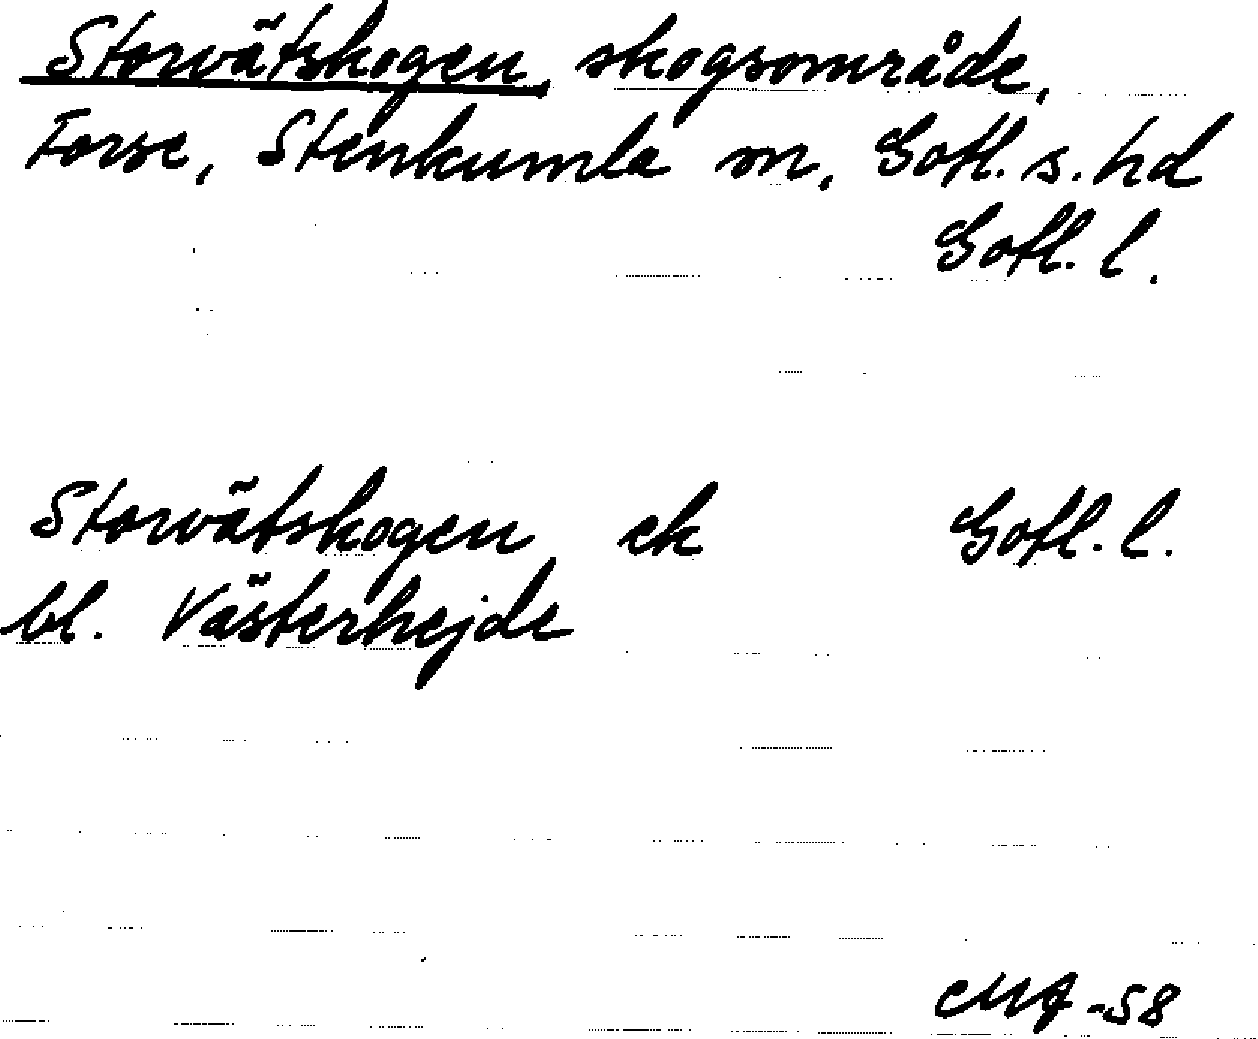 Storvätskogen, skogsområde,
Forse, Stenkumla sn, Gotl. s. hd
Gotl. l.
Storvätskogen ek Gotl. l.
bl. Västerhejde
-58